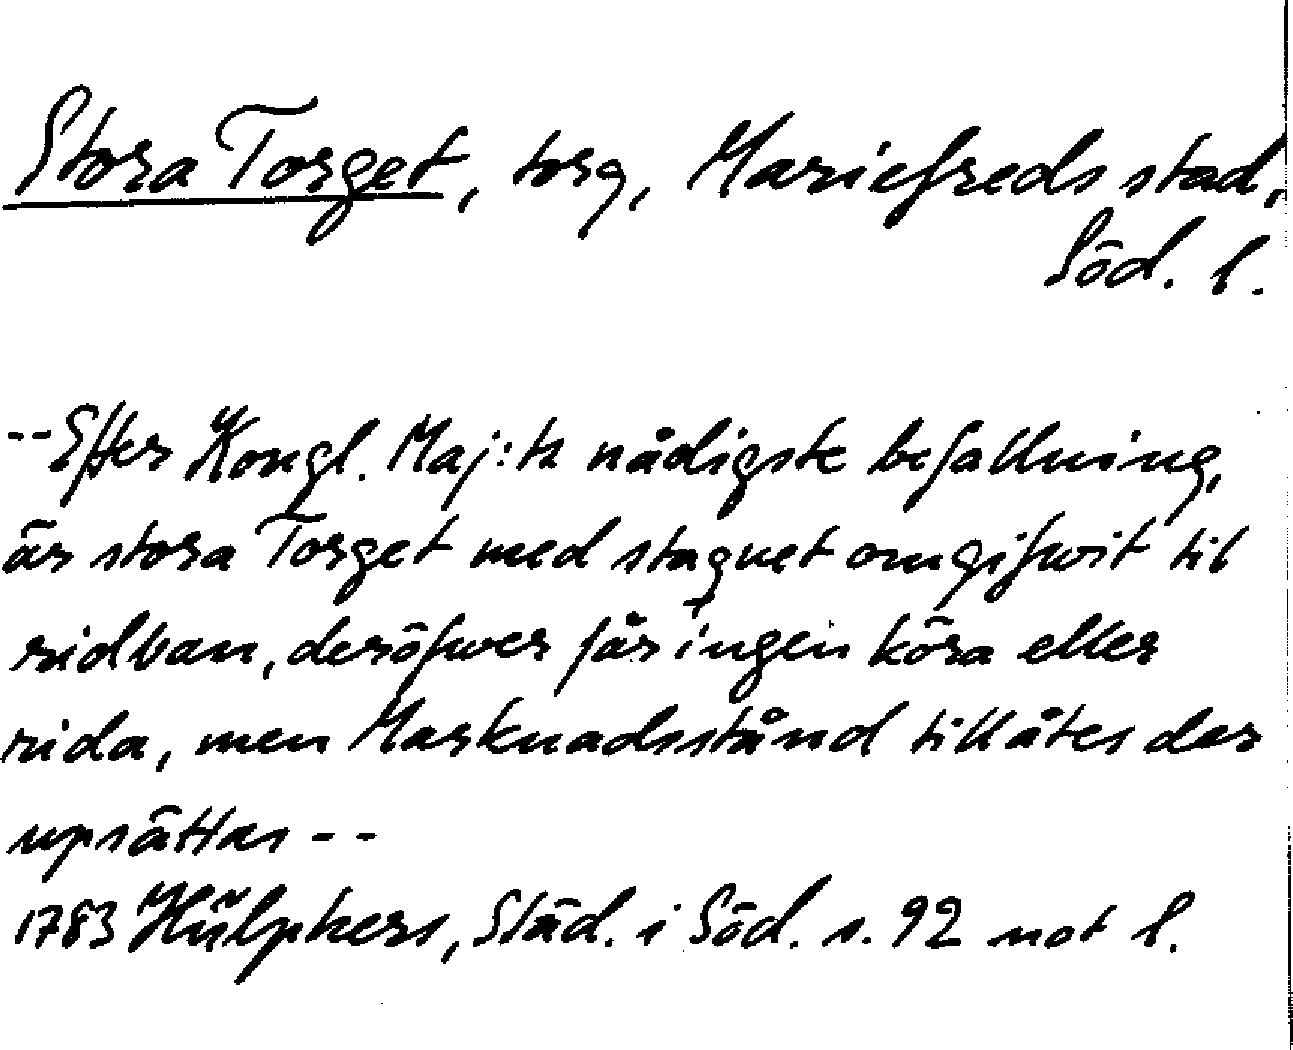 Stora Torget, torg, Mariefreds stad,
Söd. l.
--Efter Kongl. Maj:tz nådigste befallning,
är stora Torget med staquet omgifwit til
ridban, deröfwer får ingen köra eller
rida, men Marknadsstånd tillåtes der
upsättas --
1783 Hülphers, Städ. i Söd. s. 92 not l.